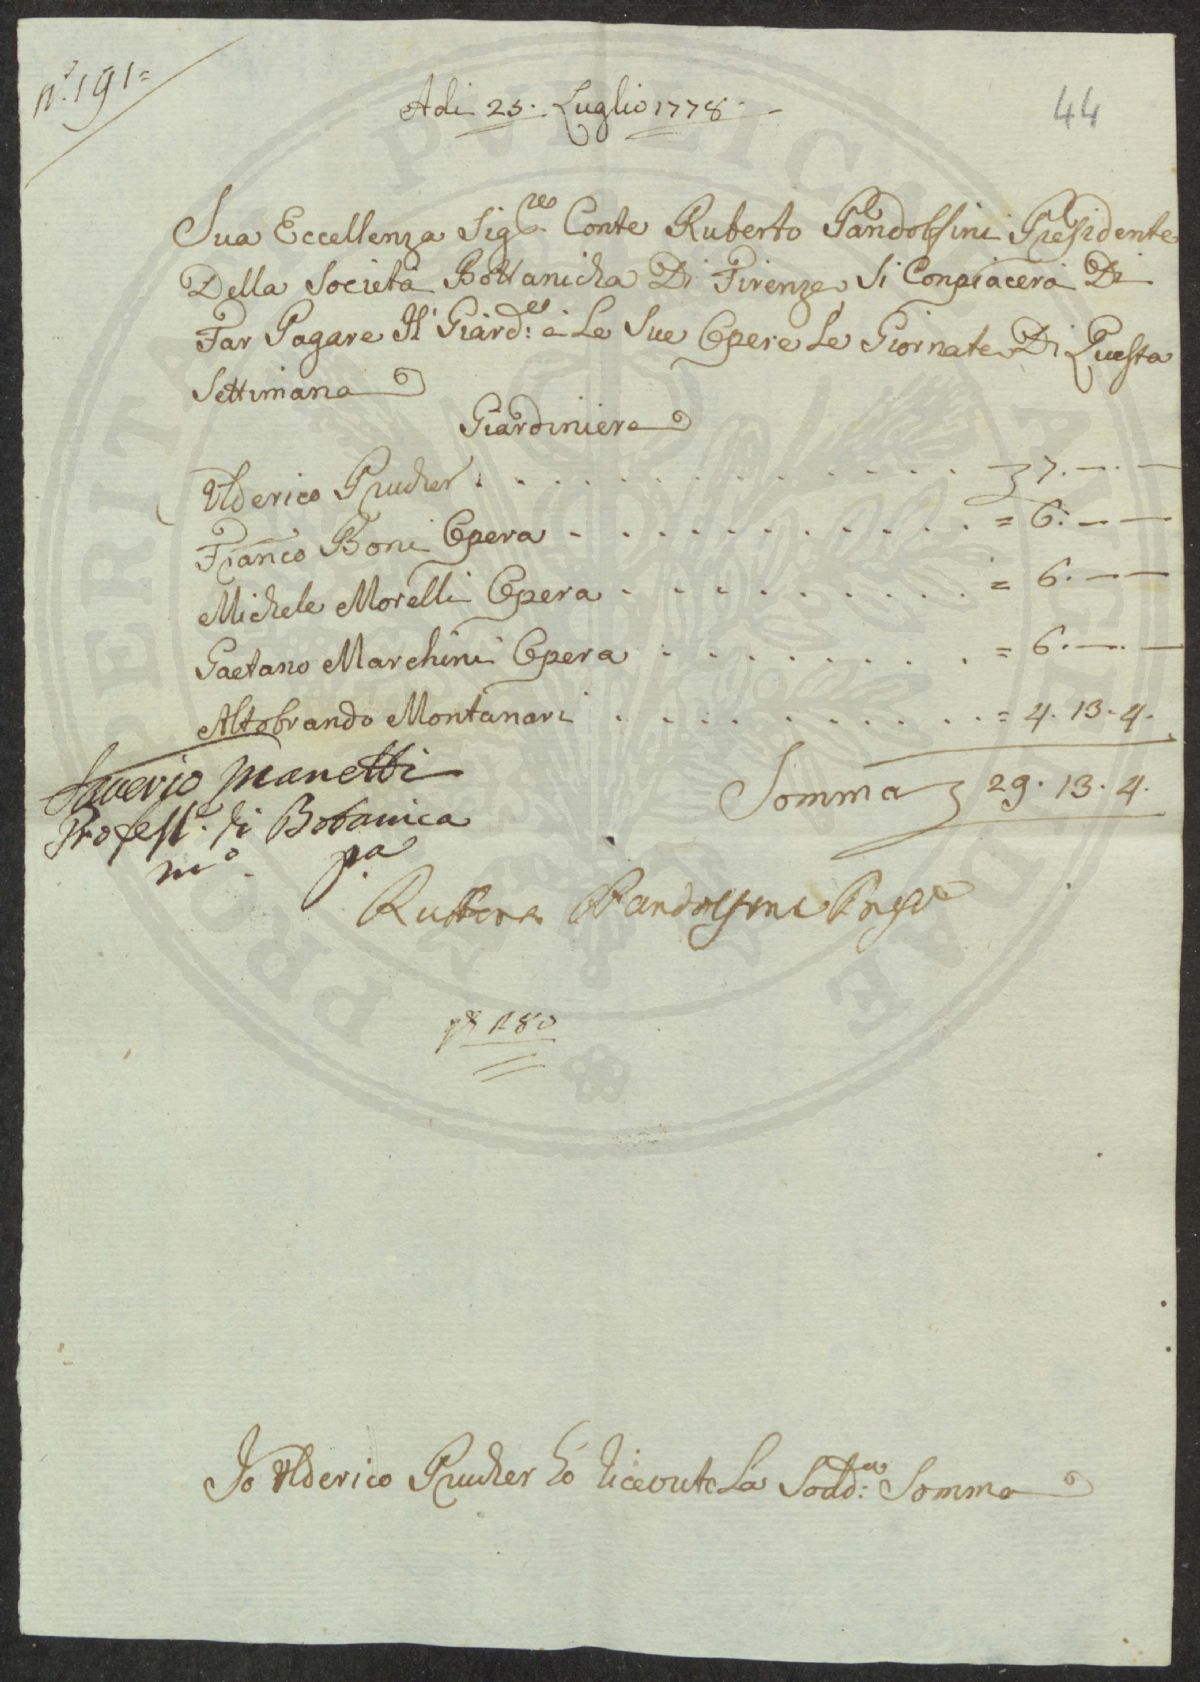 N.º 191=
44
Adi 25. Luglio 1778.
Sua Eccellenza Sig.re Conte Ruberto Pandolfini Presidente
Della Società Bottanicha Di Firenze, Si Conpiacerà Di
Far Pagare Il Giard:re è Le Sue Opere Le Giornate Di Questa
Settimana
Giardiniere
Ulderico Prucher . . . . . . . . . . . . . 7. — . —
Franco Boni Opera . . . . . . . . . . = 6: — —
Michele Morelli Opera . . . . . . . . . = 6. — —
Gaetano Marchini Opera . . . . . . . . = 6. — . —
Altobrando Montanari . . . . . . . . . . = 4. 13. 4.
Somma 29. 13. 4.
Saverio Manetti
Profess.e di Botanica
m.o p.a
Ruberto Pandolfini
180
Io Ulderico Prucher hò riceuto La Sodd:a Somma
PERITAE PVBLICAE